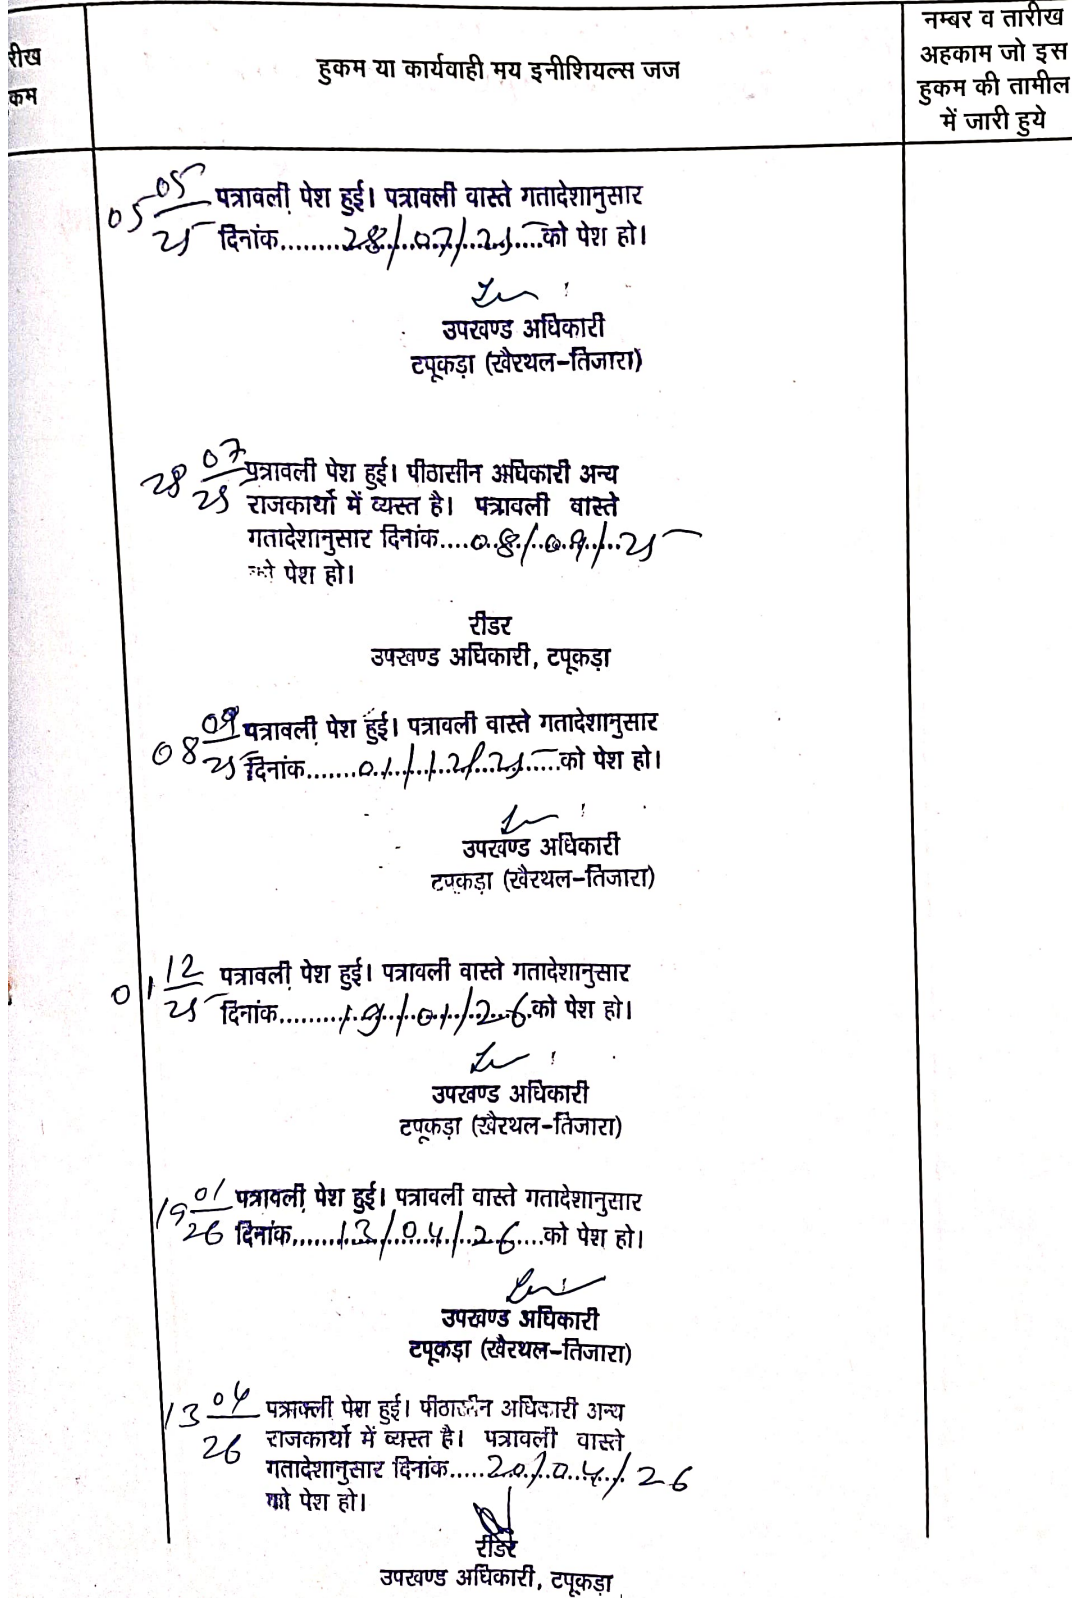 रीख
कम
हुकम या कार्यवाही मय इनीशियल्स जज
नम्बर व तारीख
अहकाम जो इस
हुकम की तामील
में जारी हुये
05 05/25 पत्रावली पेश हुई। पत्रावली वास्ते गतादेशानुसार
दिनांक.........28/07/25....को पेश हो।
उपखण्ड अधिकारी
टपूकड़ा (खैरथल-तिजारा)
28 07/25 पत्रावली पेश हुई। पीठासीन अधिकारी अन्य
राजकार्यो में व्यस्त है। पत्रावली वास्ते
गतादेशानुसार दिनांक....08/09/25
को पेश हो।
रीडर
उपखण्ड अधिकारी, टपूकड़ा
08 09/25 पत्रावली पेश हुई। पत्रावली वास्ते गतादेशानुसार
दिनांक.......01/12/25.....को पेश हो।
उपखण्ड अधिकारी
टपूकड़ा (खैरथल-तिजारा)
01 12/25 पत्रावली पेश हुई। पत्रावली वास्ते गतादेशानुसार
दिनांक.........19/01/26.को पेश हो।
उपखण्ड अधिकारी
टपूकड़ा (खैरथल-तिजारा)
19 01/26 पत्रावली पेश हुई। पत्रावली वास्ते गतादेशानुसार
दिनांक.......13/04/26....को पेश हो।
उपखण्ड अधिकारी
टपूकड़ा (खैरथल-तिजारा)
13 04/26 पत्रावली पेश हुई। पीठासीन अधिकारी अन्य
राजकार्यो में व्यस्त है। पत्रावली वास्ते
गतादेशानुसार दिनांक.....20/04/26
को पेश हो।
रीडर
उपखण्ड अधिकारी, टपूकड़ा